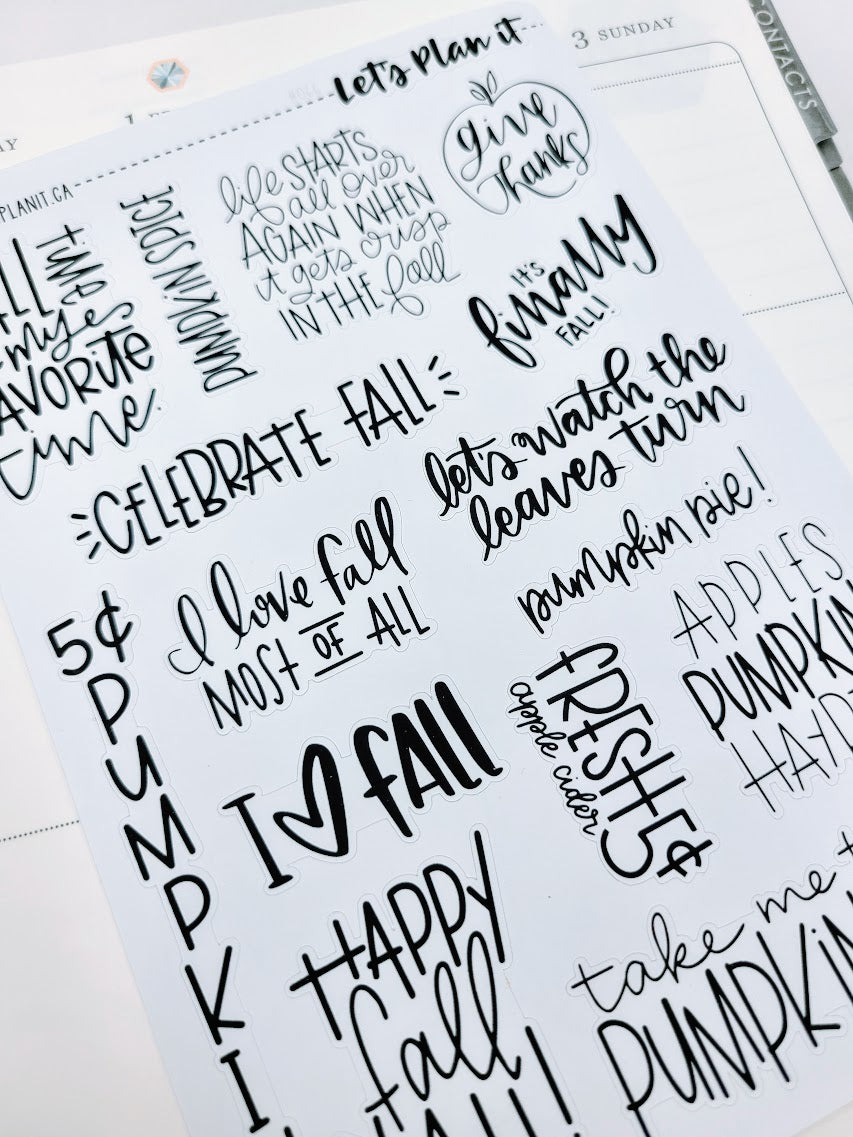 3 SUNDAY
CONTACTS
1
Let's Plan it
PLANIT.CA
give
Thanks
life STARTS
all over
AGAIN WHEN
it gets crisp
IN THE fall
PUMPKIN SPICE
my
FAVORITE
time.
IT'S
finally
FALL!
CELEBRATE FALL
let's watch the
leaves turn
I love fall
MOST OF ALL
pumpkin pie!
5¢
PUMPKI
APPLES
PUMPKIN
HAYR
FRESH 5¢
apple cider
I ♥ FALL
HAPPY
fall
take me t
PUMPKIN